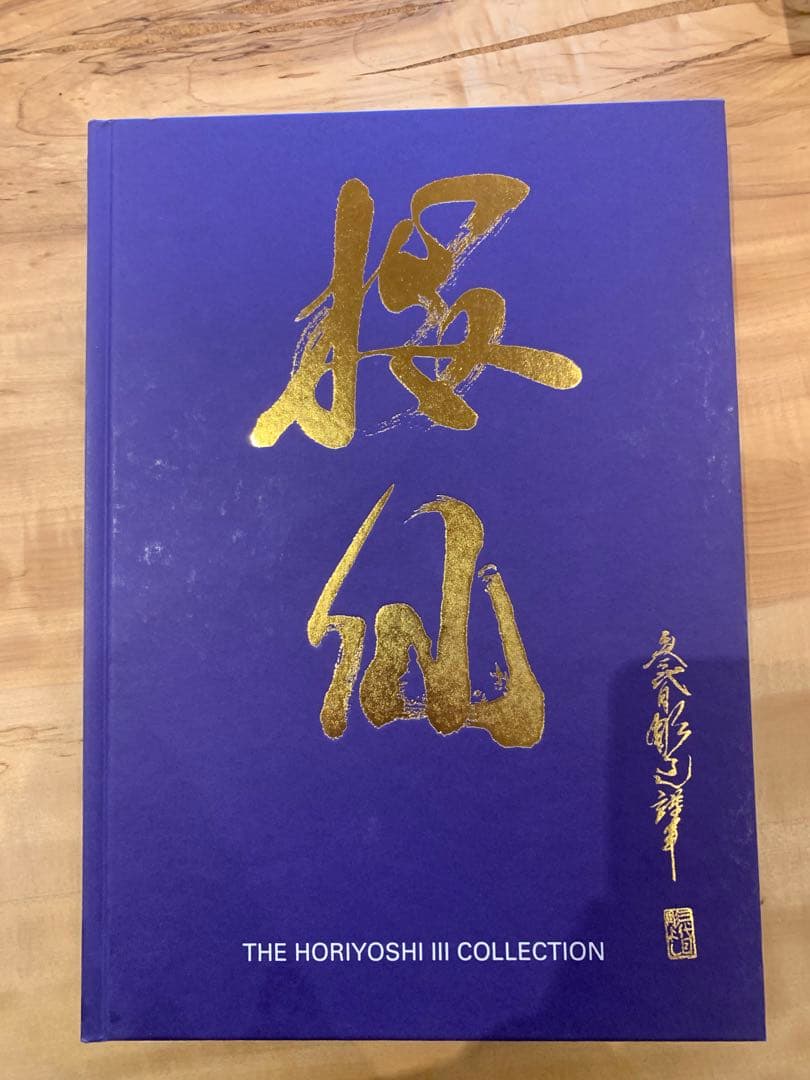 桜仙
三代目彫よし
THE HORIYOSHI III COLLECTION